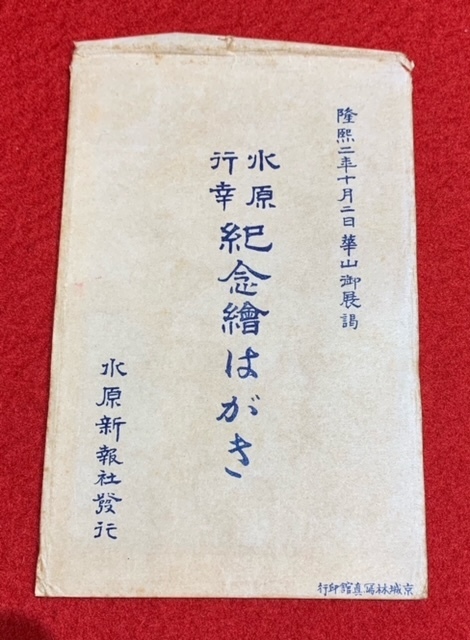 隆熙二年十月二日華山御展謁
水原
行幸
紀念繪はがき
水原新報社發行
京城林寫真館印行